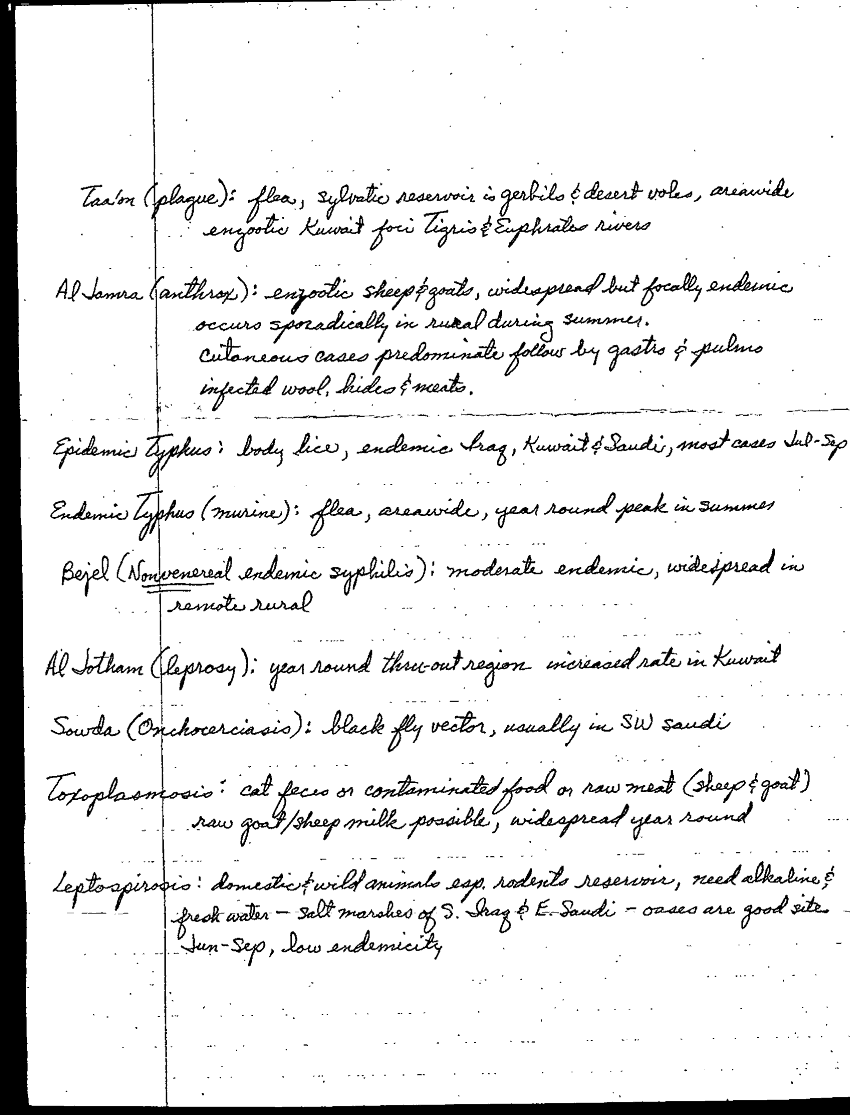 Taa'on (plague): flea, sylvatic reservoir is gerbils & desert voles, areawide
enzootic Kuwait foci Tigris & Euphrates rivers
Al Jamra (anthrax): enzootic sheep & goats, widespread but focally endemic
occurs sporadically in rural during summer.
cutaneous cases predominate follow by gastro & pulmo
infected wool, hides & meats.
Epidemic Typhus: body lice, endemic Iraq, Kuwait & Saudi, most cases Jul-Sep
Endemic Typhus (murine): flea, areawide, year round peak in summer
Bejel (Nonvenereal endemic syphilis): moderate endemic, widespread in
remote rural
Al Jotham (leprosy): year round thru-out region increased rate in Kuwait
Sowda (Onchocerciasis): black fly vector, usually in SW Saudi
Toxoplasmosis: cat feces or contaminated food or raw meat (sheep & goat)
raw goat/sheep milk possible, widespread year round
Leptospirosis: domestic & wild animals esp. rodents reservoir, need alkaline &
fresh water - salt marshes of S. Iraq & E. Saudi - oases are good site
Jun-Sep, low endemicity